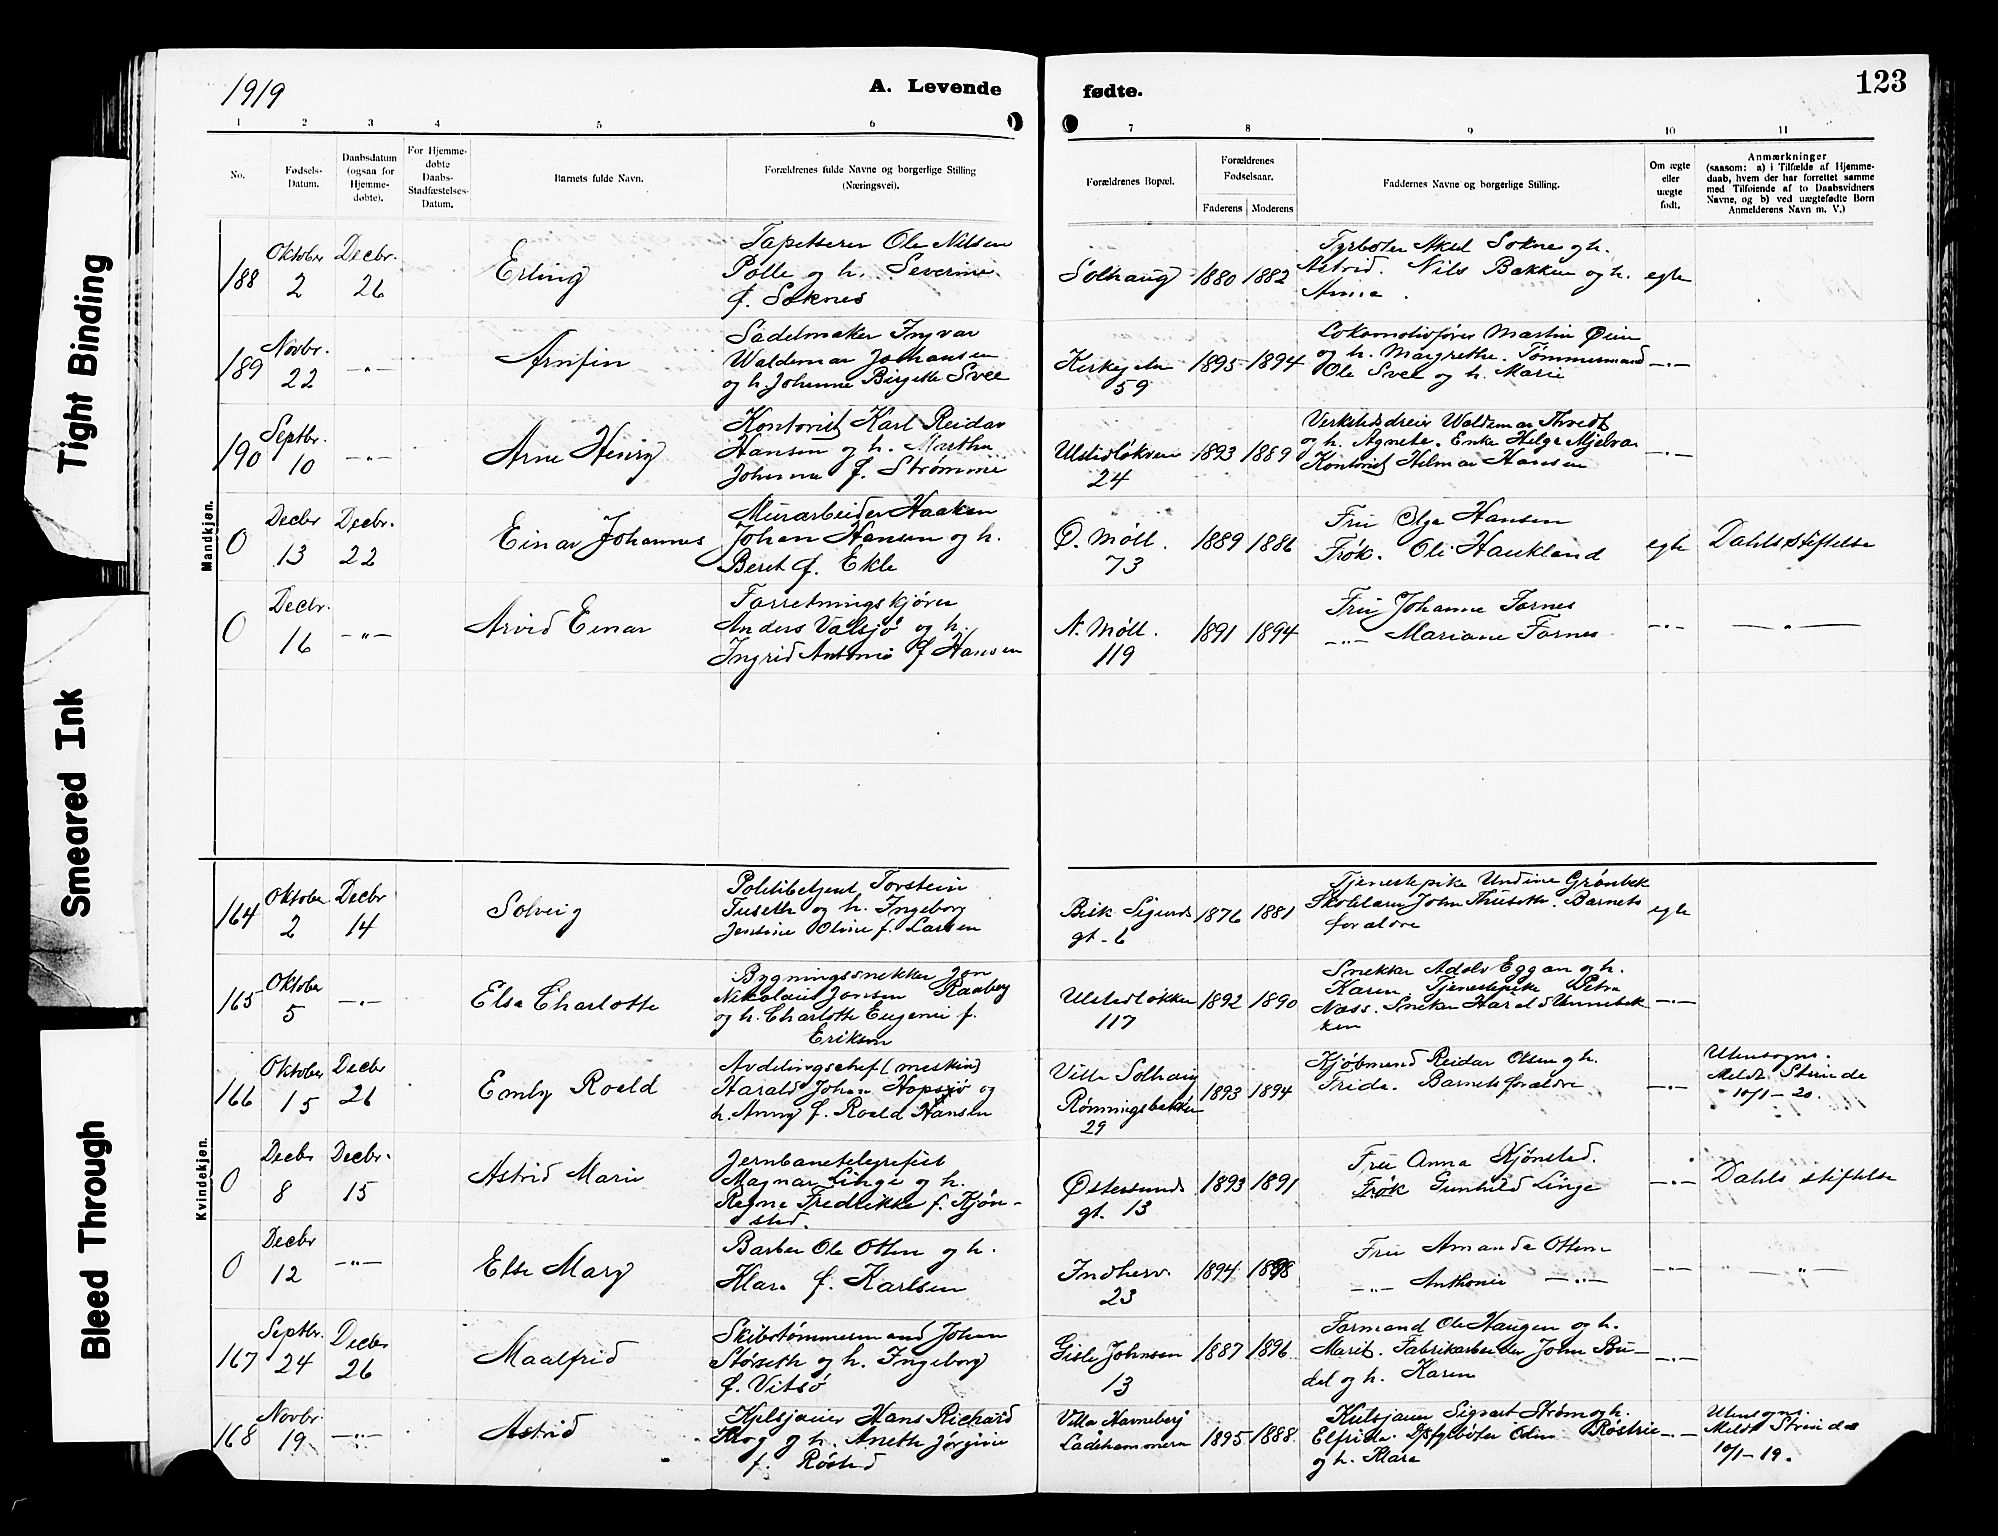 Tight Binding
Smeared Ink
Bleed Through
1919
A. Levende
fødte.
123
1 2 3 4 5 6 7 8 9 10 11
No.
Fødsels-
Datum.
Daabsdatum
(ogsaa for
Hjemme-
døbte).
For Hjemme-
døbte
Daabs-
Stadfæstelses-
Datum.
Barnets fulde Navn.
Forældrenes fulde Navne og borgerlige Stilling
(Næringsvei).
Forældrenes Bopæl.
Forældrenes
Fødselsaar.
Faderens Moderens
Faddernes Navne og borgerlige Stilling.
Om ægte
eller
uægte
født.
Anmærkninger
(saasom: a) i Tilfælde af Hjemme-
daab, hvem der har forrettet samme
med Tilføiende af to Daabsvidners
Navne, og b) ved uægtefødte Børn
Anmelderens Navn m. V.)
Mandkjøn.
188
Oktober
2
Decbr.
26
Erling
Tapetserer Ole Nilsen
Polle og h. Severine
f. Soknes
Solhaug
1880 1882
Fyrbøter Aksel Soknes og h.
Astrid. Nils Bakken og h.
Anna.
egte
189
Novbr.
22
—"—
Arnfin
Sadelmaker Ingvar
Waldemar Johansen
og h. Johanne Birgitte Svee
Kirkegaten
59
1895 1894
Lokomotivfører Martin Øien
og h. Margrethe. Tømmermand
Ole Svee og h. Marie
—"—
190
Septbr.
10
—"—
Arne Henry
Kontorist Karl Reidar
Hansen og h. Martha
Johanna f. Strømme
Ulstadløkken
24
1893 1889
Verkstedsdreier Waldemar
og h. Agnete. Enke Helga
Kontorist Hilmar Hansen
—"—
0
Decbr
13
Decbr.
22
Einar Johannes
Murarbeider Haaken
Johan Hansen og h.
Beret f. Ekle
Ø. Møll.
73
1889 1886
Fru Olga Hansen
Frøk. Oli Haukland
egte
Dahls stiftelse
0
Decbr.
16
—"—
Arvid Einar
Forretningskjører
Anders Valsjø og h.
Ingrid Antonie f. Hansen
N. Møll.
119
1891 1894
Fru Johanne Fornes
—"— Mariane Fornes
—"—
— " —
Kvindekjøn.
164
Oktober
2
Decbr
14
Solveig
Politibetjent Torstein
Tuseth og h. Ingeborg
Jensine Oline f. Larsen
Bisk Sigurds
gt. 6
1876 1881
Tjenestepike Undine Grønbek
Skolelærer John Thuseth. Barnets
forældre
egte
165
Oktober
5
—"—
Else Charlotte
Bygningssnekker Jon
Nikolaus Jonsen Raaberg
og h. Charlotte Eugenie f.
Erikson
Ulstadløkken
117
1892 1890
Snekker Adolv Eggan og h.
Karen. Tjenestepike Petra
Næss. Snekker Harald
ken
—"—
166
Oktober
15
Decbr
26
Emly Roald
Avdelingschef (maskin)
Harald Johan Hopsjø og
h. Anny f. Roald Hansen
Villa Solhaug
Rønningsbakken
29
1893 1894
Kjøbmand Reidar Olsen og h.
Frida. Barnets forældre
—"—
Utensogns.
Meldt Strinda
10/1–20.
0
Decbr
8
Decbr.
15
Astrid Marie
Jernbanetelegrafist
Magnar Linge og h.
Regne Fredrikke f. Kjøn-
sted.
Østersunds
gt. 13
1893 1891
Fru Anna Kjønsted.
Frøk Gunhild Linge
—"—
Dahls stiftelse
0
Decbr
12
—"—
Else Mary
Barber Ole Olsen og h.
Klara f. Karlsen
Indherv.
23
1894 1898
Fru Amanda Olsen
—"— Anthonie —"—
—"—
" — " —
167
Septbr.
24
Decbr
26
Maalfrid
Skibstømmermand Johan
Størseth og h. Ingeborg
f. Vitsø
Gisle Johnsen
13
1887 1896
Formand Ole Haugen og h.
Marit. Fabrikarbeider John Bu-
dal og h. Karen
—"—
168
Novbr.
19
—"—
Astrid
Kjelsjauer Hans Richard
Krog og h. Aneth Jørgine
f. Røsted
Villa Havneberg
Ladehammeren
1895 1888.
Kulsjauer Sigvart Strøm og h.
Elfrida. Odin Røstrie
og h. Klara
—"—
Utensogns.
Meldt Strinda
10/1–19.